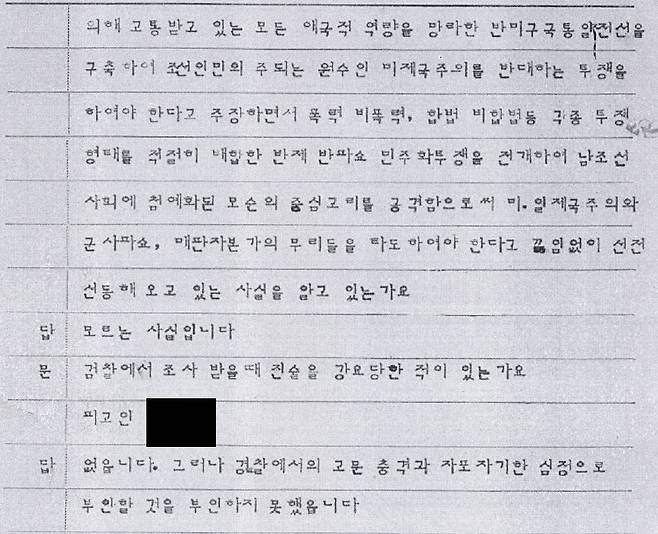 의해 고통받고 있는 모든 애국적 역량을 망라한 반미구국통일전선을
구축하여 조선인민의 주되는 원수인 미제국주의를 반대하는 투쟁을
하여야 한다고 주장하면서 폭력 비폭력, 합법 비합법등 각종 투쟁
형태를 적절히 배합한 반제 반파쇼 민주화투쟁을 전개하여 남조선
사회에 첨예화된 모순의 중심고리를 공격함으로써 미.일제국주의와
군사파쇼, 매판자본가의 무리들을 타도하여야 한다고 끊임없이 선전
선동해 오고 있는 사실을 알고 있는가요
답 모르는 사실입니다
문 검찰에서 조사 받을때 진술을 강요당한 적이 있는가요
피고인
답 없읍니다. 그러나 경찰에서의 고문 충격과 자포자기한 심정으로
부인할 것을 부인하지 못했읍니다